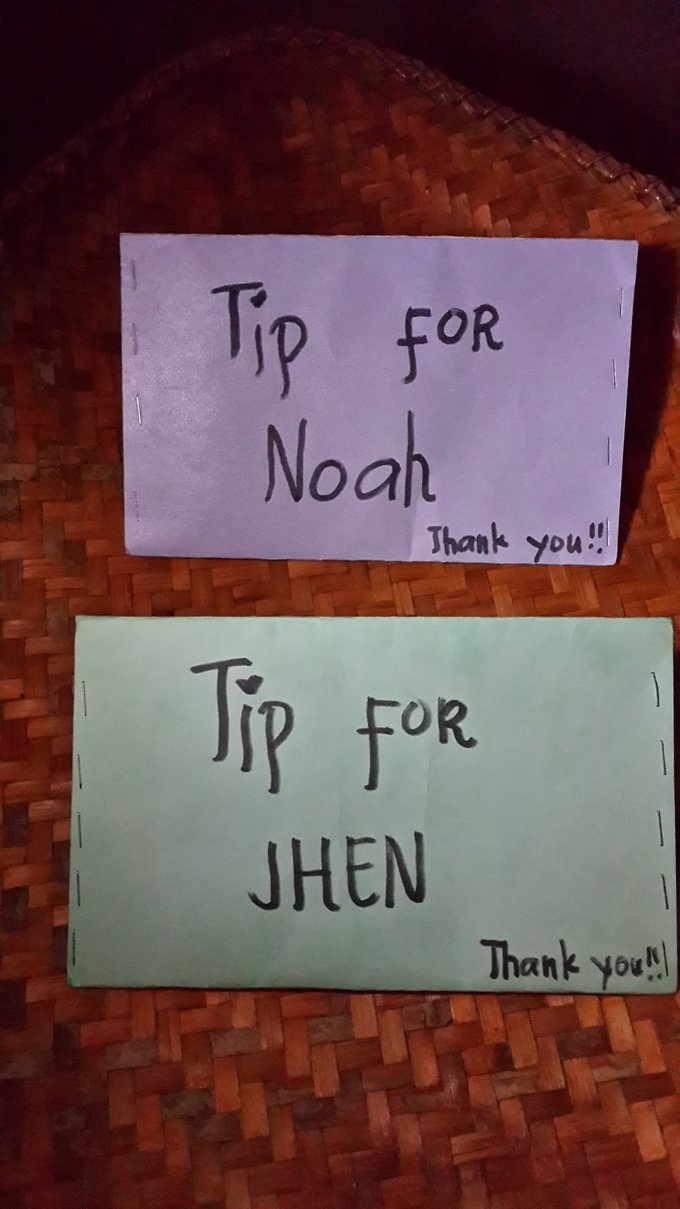 Tip FOR
Noah
Thank you!!
Tip FOR
JHEN
Thank you!!